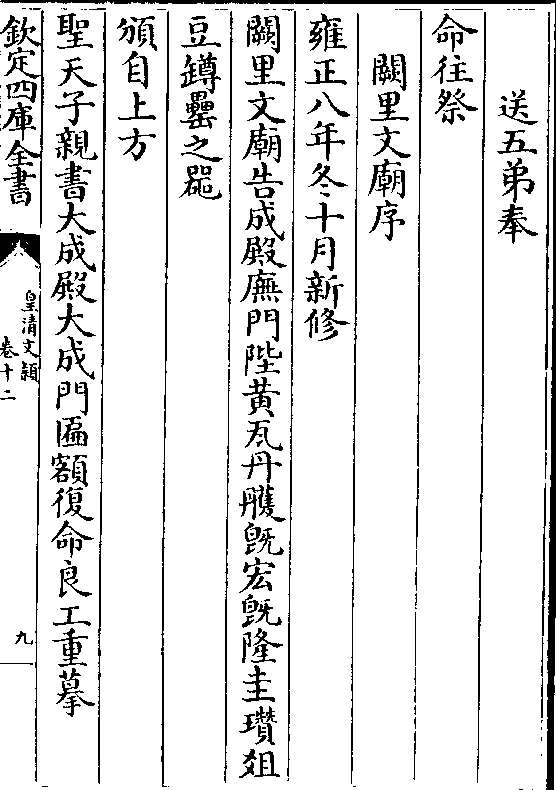 送五弟奉
命往祭
闕里文廟序
雍正八年冬十月新修
闕里文廟告成殿廡門陛黄瓦丹雘既宏既隆圭瓚俎
豆鐏罍之器
頒自上方
聖天子親書大成殿大成門匾額復命良工重摹
欽定四庫全書
皇清文穎
卷十二
九